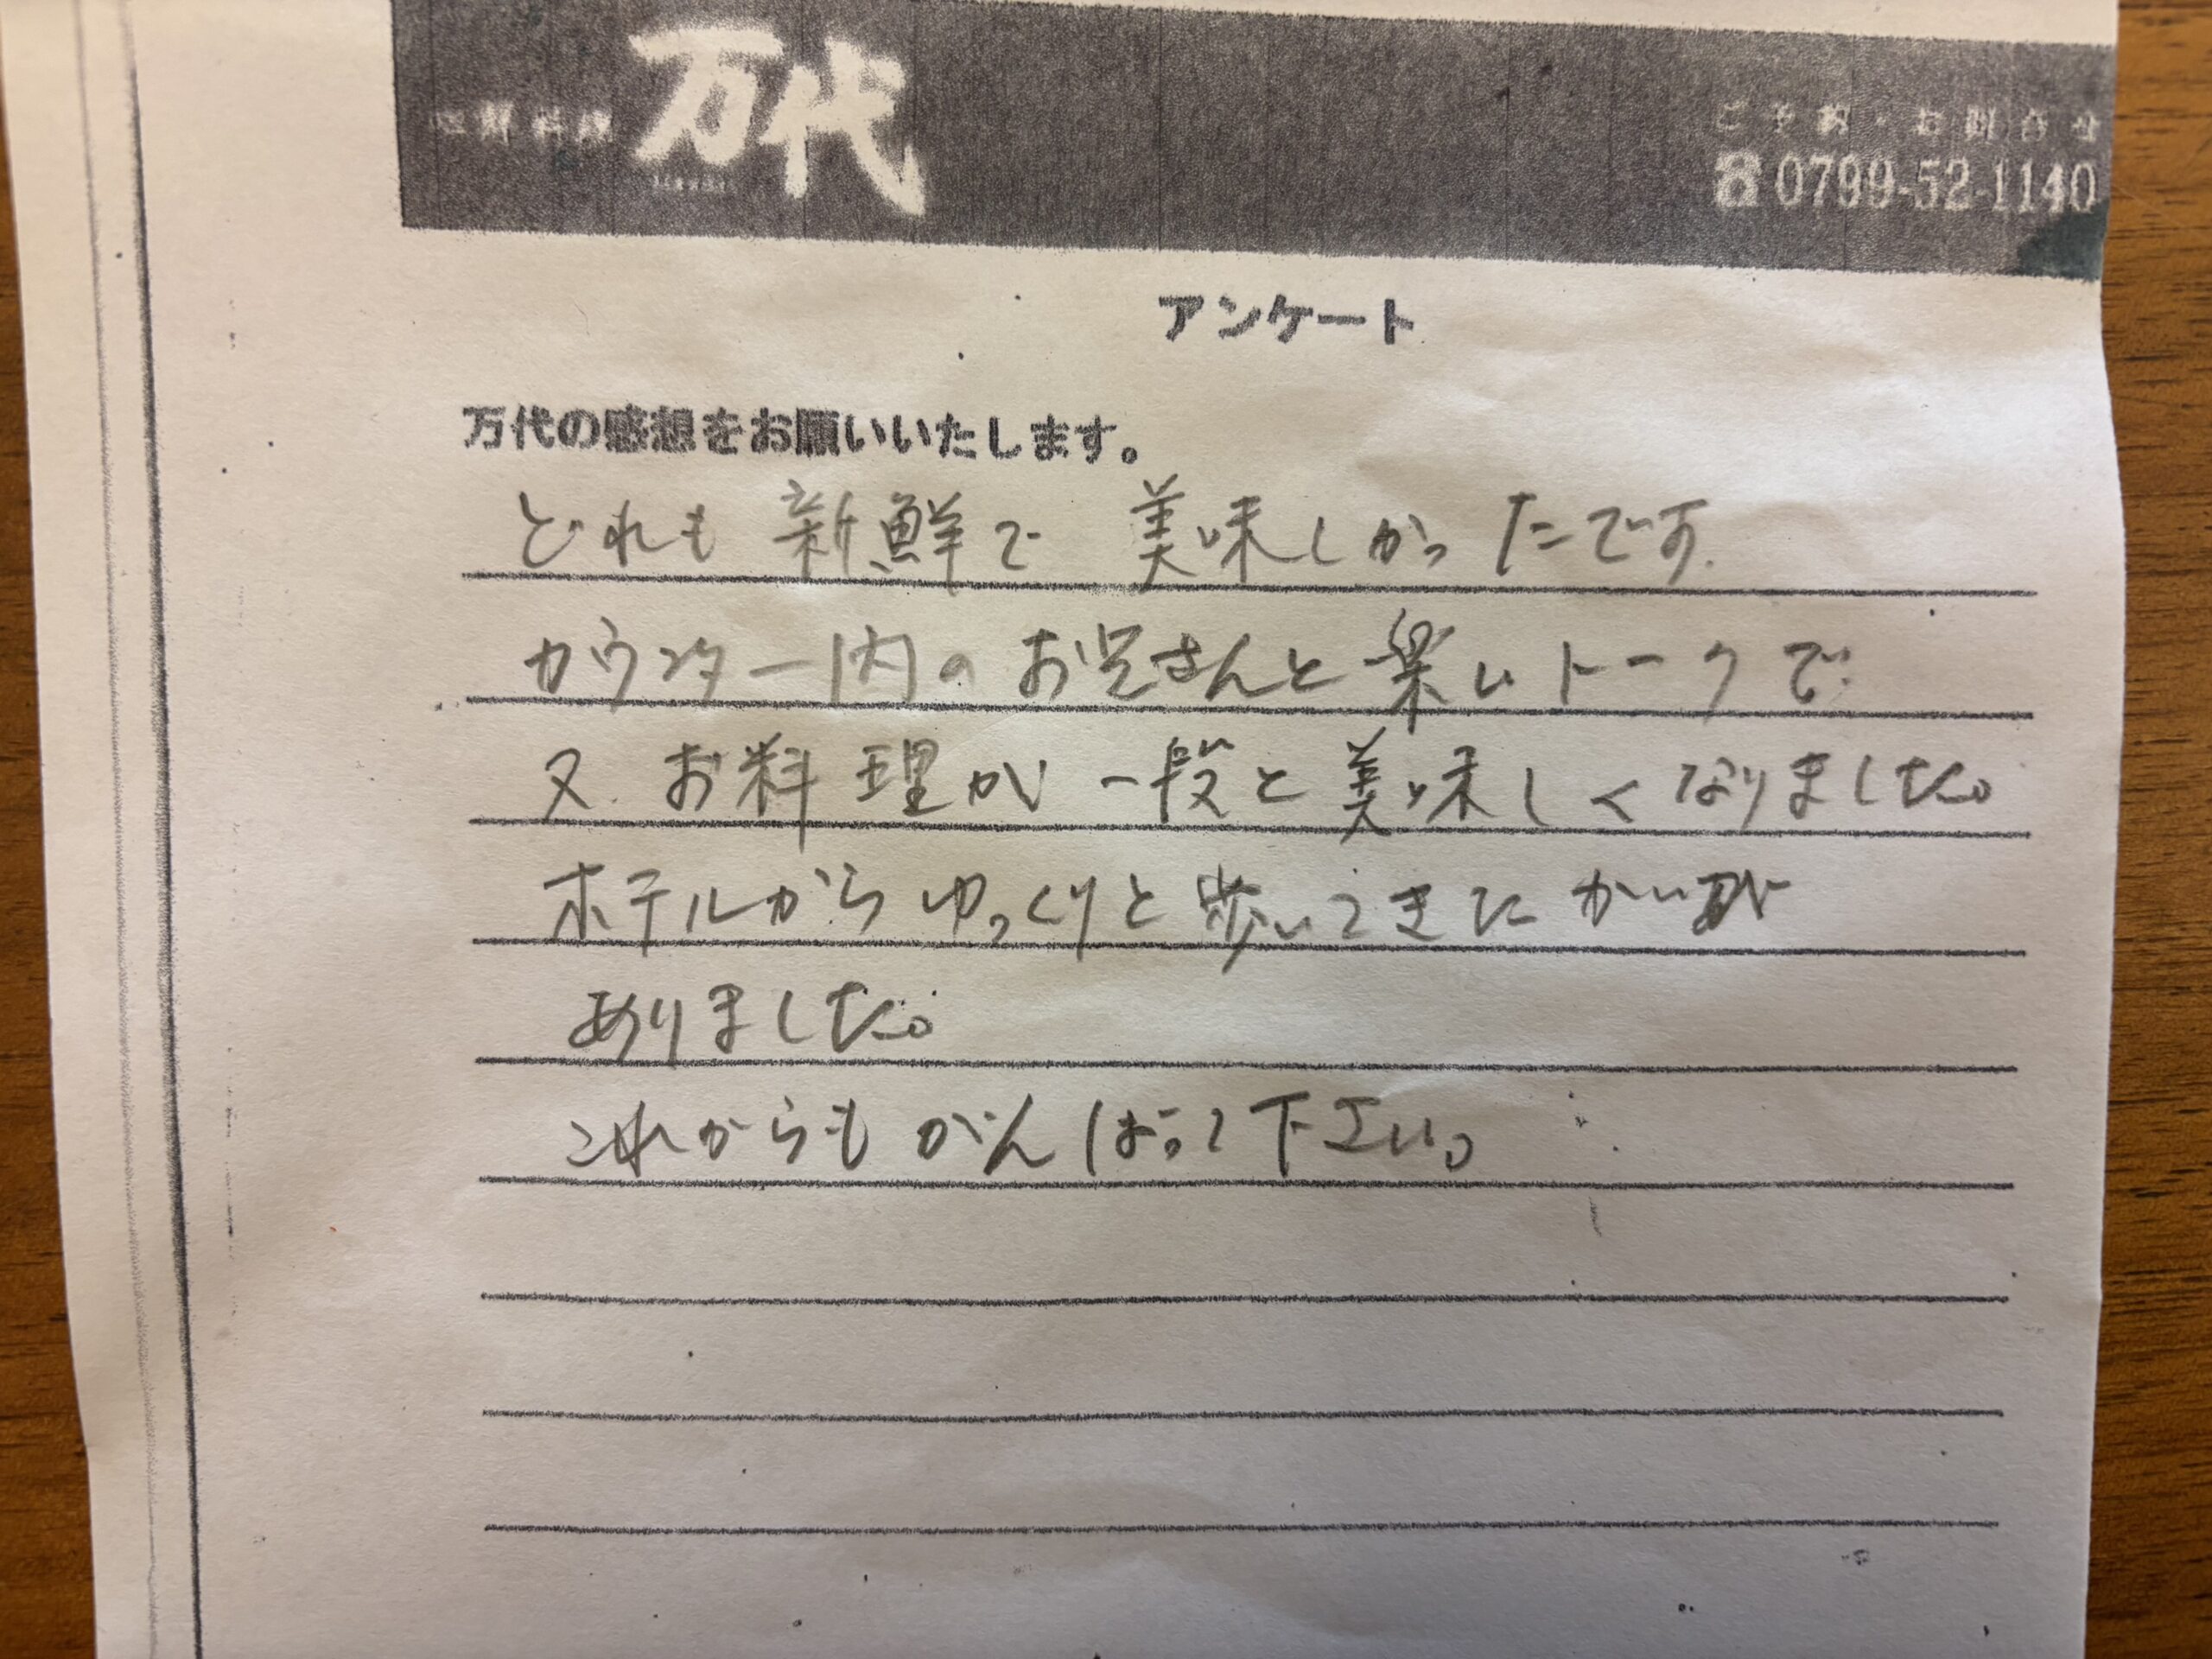 万代
ご予約・お問合せ
☎0799-52-1140
アンケート
万代の感想をお願いいたします。
どれも新鮮で 美味しかったです.
カウンター内のお兄さんと楽いトークで
又.お料理が一段と美味しくなりました。
ホテルからゆっくりと歩いてきたかいが
ありました。
これからもがんばって下さい。